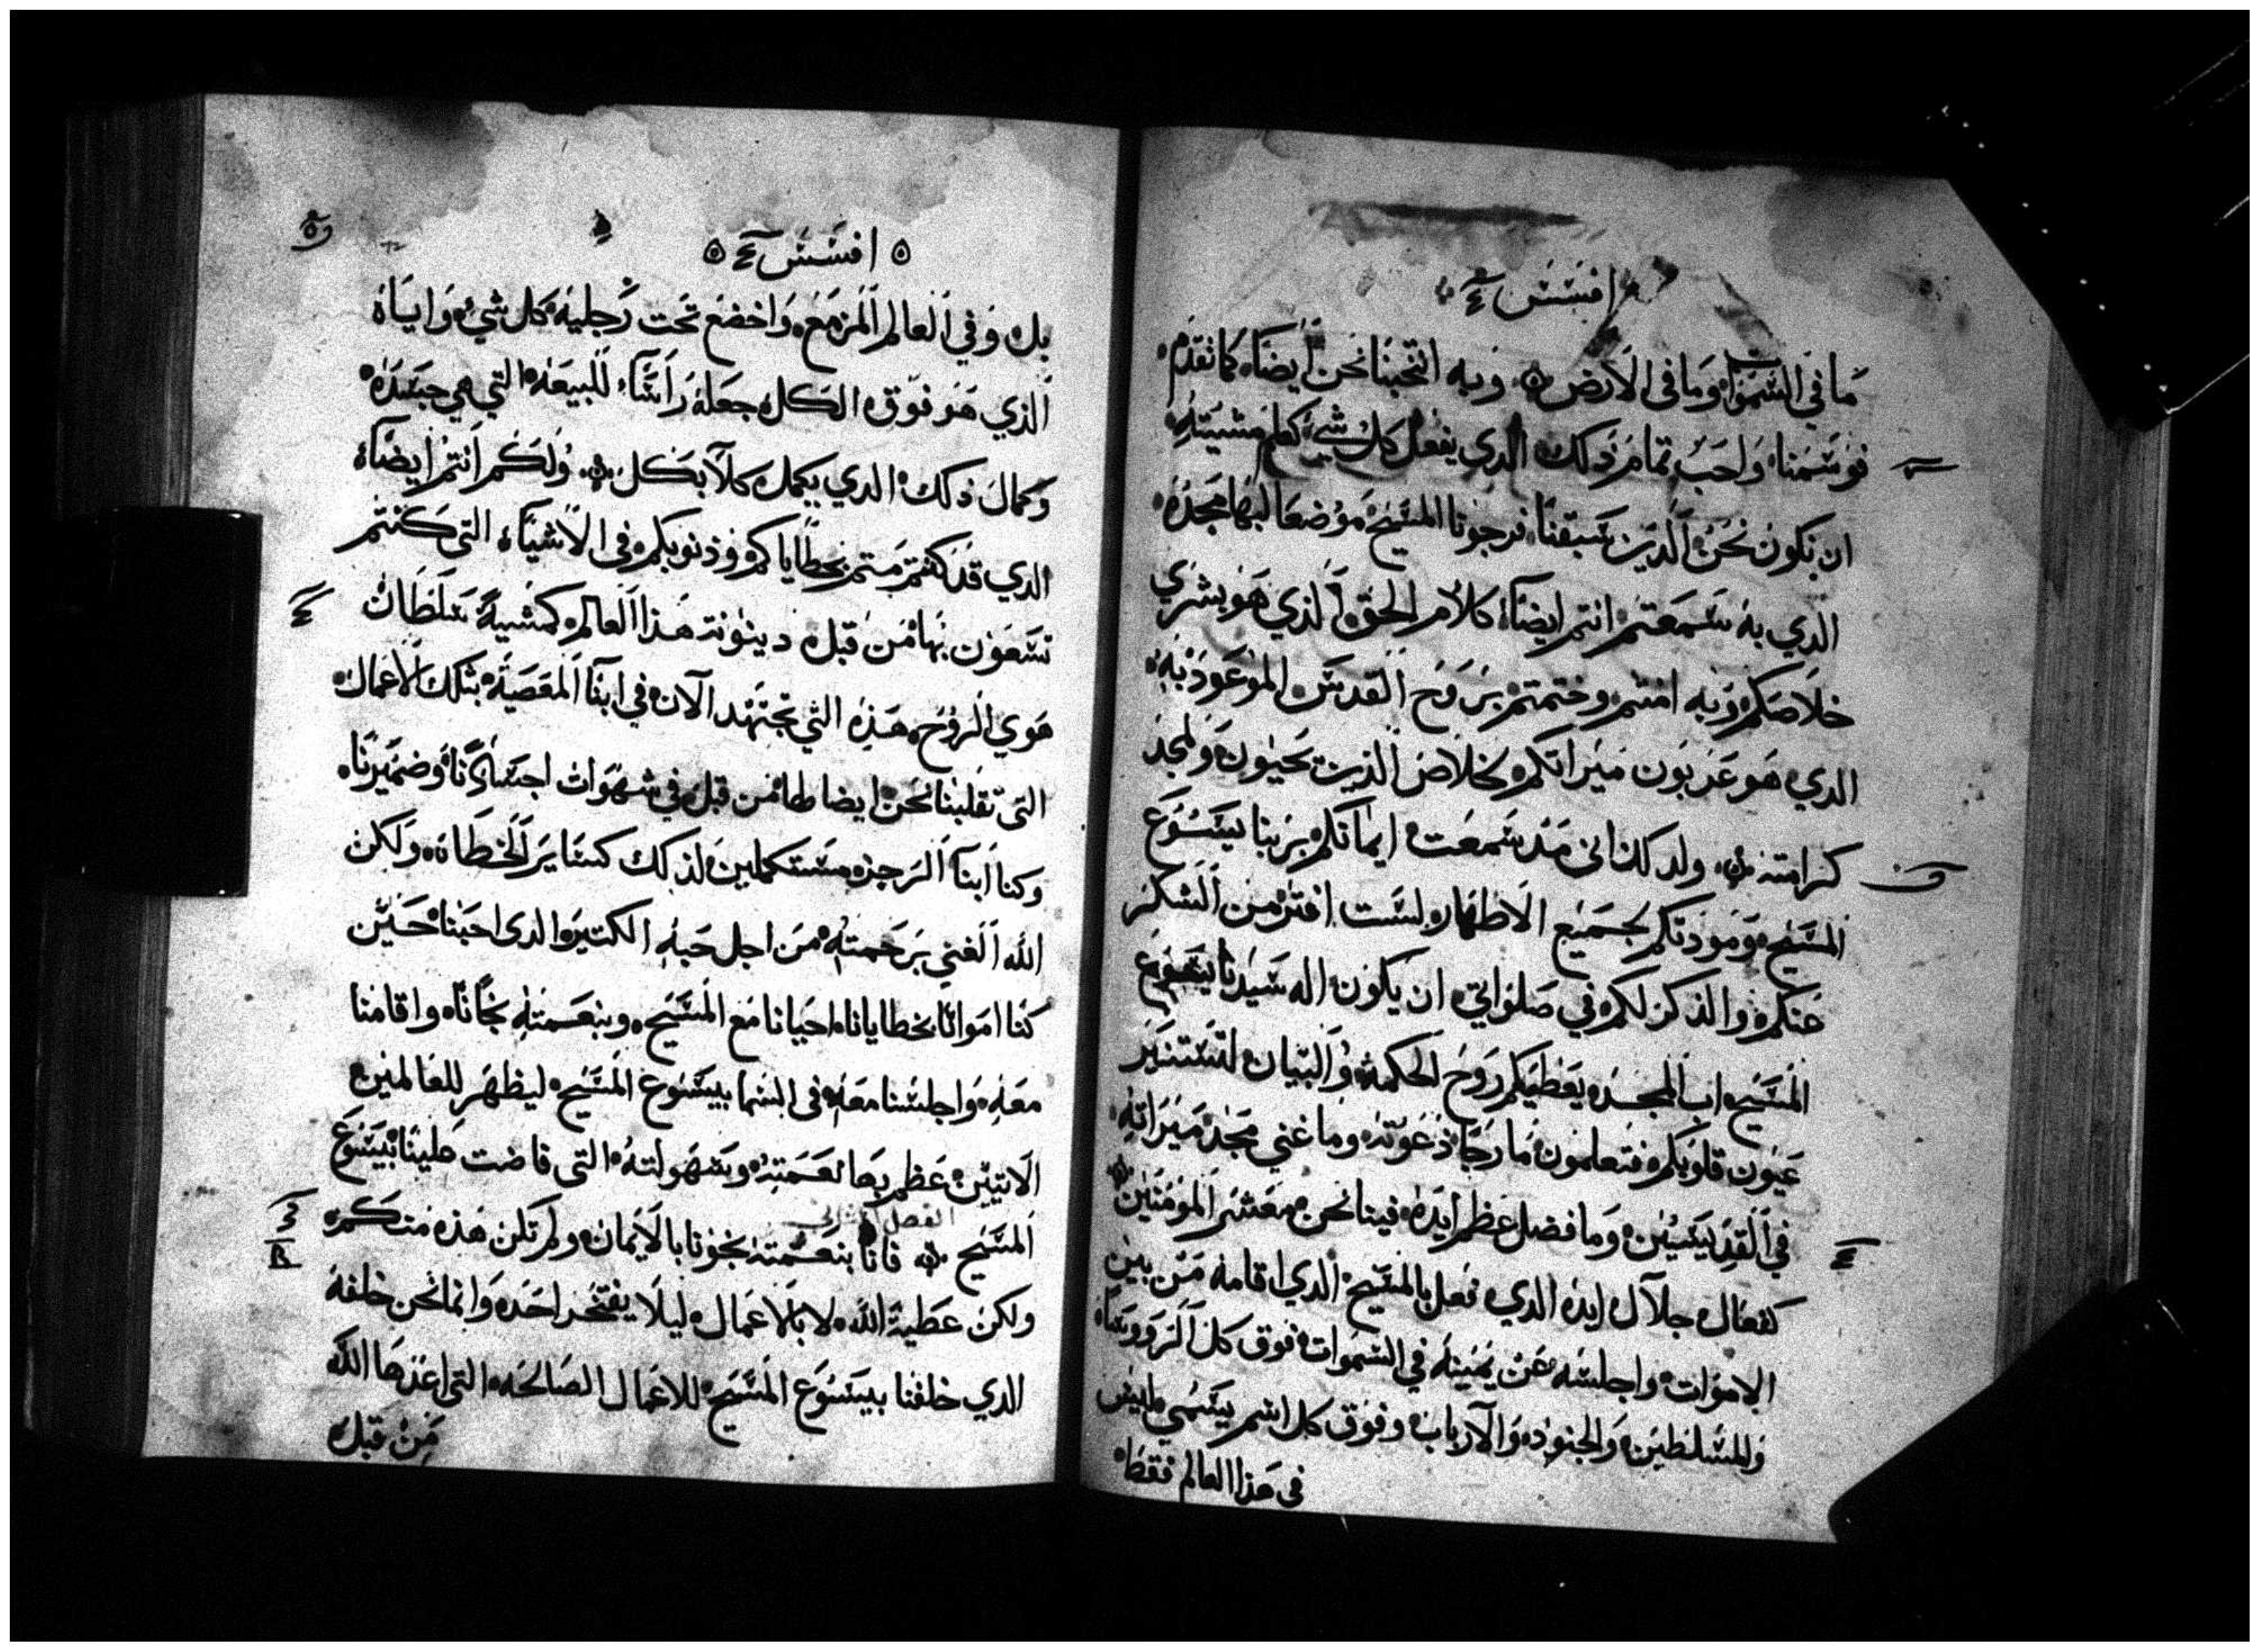 افسس
ما في السموات وما في الارض وبه انتخبنا نحن ايضا كما تقدم
فوسمنا واحب تمام ذلك الدي يفعل كل شي كعلم مشيته
ان نكون نحن الدين سبقنا فرجونا المسيح موضعا لبها مجده
الدي به سمعتم انتم ايضا كلام الحق الذي هو بشري
خلاصكم وبه امنتم وختمتم بروح القدس الموعود به
الدي هو عربون ميراتكم لخلاص الذين يحيون ولمجد
كرامته ولدلك انى مند سمعت ايمانكم بربنا يسوع
المسيح ومودتكم لجميع الاطهار لست افتر من الشكر
عنكم والذكر لكم في صلواتي ان يكون اله سيدنا يسوع
المسيح اب المجد يعطيكم روح الحكمه والبيان لتستنير
عيون قلوبكم فتعلمون ما رجا دعوته وما غني مجد ميراته
في القديسين وما فضل عظم ايده فينا نحن معشر المومنين
كفعال جلال ايده الدي فعل بالمسيح الدي اقامه من بين
الاموات واجلسه عن يمينه في السموات فوق كل الروسا
والمسلطين والجنود والارباب وفوق كل اسم يسمي ليس
في هذا العالم فقط
افسس
بل وفي العالم المزمع واخضع تحت رجليه كل شي واياه
الذي هو فوق الكل جعله راسا للبيعه التي هي جسده
وكمال ذلك الدي يكمل كلا بكل ولكم انتم ايضا
الدي قد كنتم متم بخطاياكم وذنوبكم في الاشيا التي كنتم
تسعون بها من قبل دينونة هذا العالم كمشية سلطان
هوي الروح هذه التي تجتهد الان في ابنا المعصية بتلك الاعمال
التي تقلبنا نحن ايضا بها من قبل في شهوات اجسادنا وضميرنا
وكنا ابنا الرجز مستكملين لذلك كساير الخطاه ولكن
الله الغني برحمته من اجل حبه الكتير الدى احبنا حين
كنا امواتا بخطايانا احيانا مع المسيح وبنعمته نجانا واقامنا
معه واجلسنا معه في السما بيسوع المسيح ليظهر للعالمين
الاتيين عظم بها نعمته وسهولته التي فاضت علينا بيسوع
الفصل الثاني
المسيح فانا بنعمته نجونا بالايمان ولم تكن هذه منكم
ولكن عطية الله لا بالاعمال ليلا يفتخر احد وانما نحن خلقه
الدي خلقنا بيسوع المسيح للاعمال الصالحه التي اعدها الله
من قبل